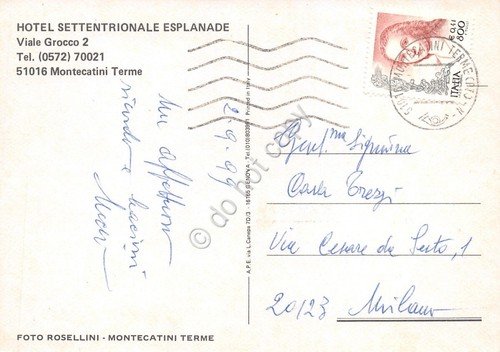 HOTEL SETTENTRIONALE ESPLANADE
Viale Grocco 2
Tel. (0572) 70021
51016 Montecatini Terme
2.9.99
Un affettuoso
ricordo e bacioni
A.P.E. via L. Canepa 7D/3 - 16165 GENOVA - Tel. (010)
Printed in Italy
800
ITALIA
MONTECATINI TERME
Gent.ma Signorina
Carla Trezzi
Via Cesare da Sesto, 1
20123 Milano
FOTO ROSELLINI - MONTECATINI TERME
© do not copy